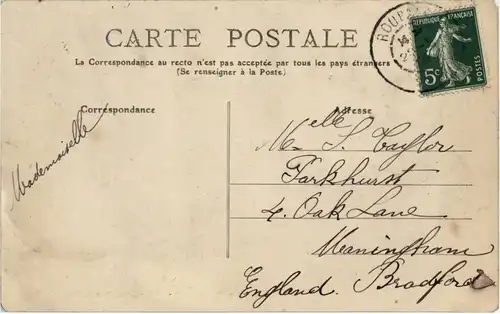 CARTE POSTALE
La Correspondance au recto n'est pas acceptée par tous les pays étrangers
(Se renseigner à la Poste)
REPUBLIQUE FRANÇAISE
5c
POSTES
ROUB
Correspondance
Adresse
Mademoiselle
Melle S. Taylor
Parkhurst
4. Oak Lane
Maningham
England. Bradford